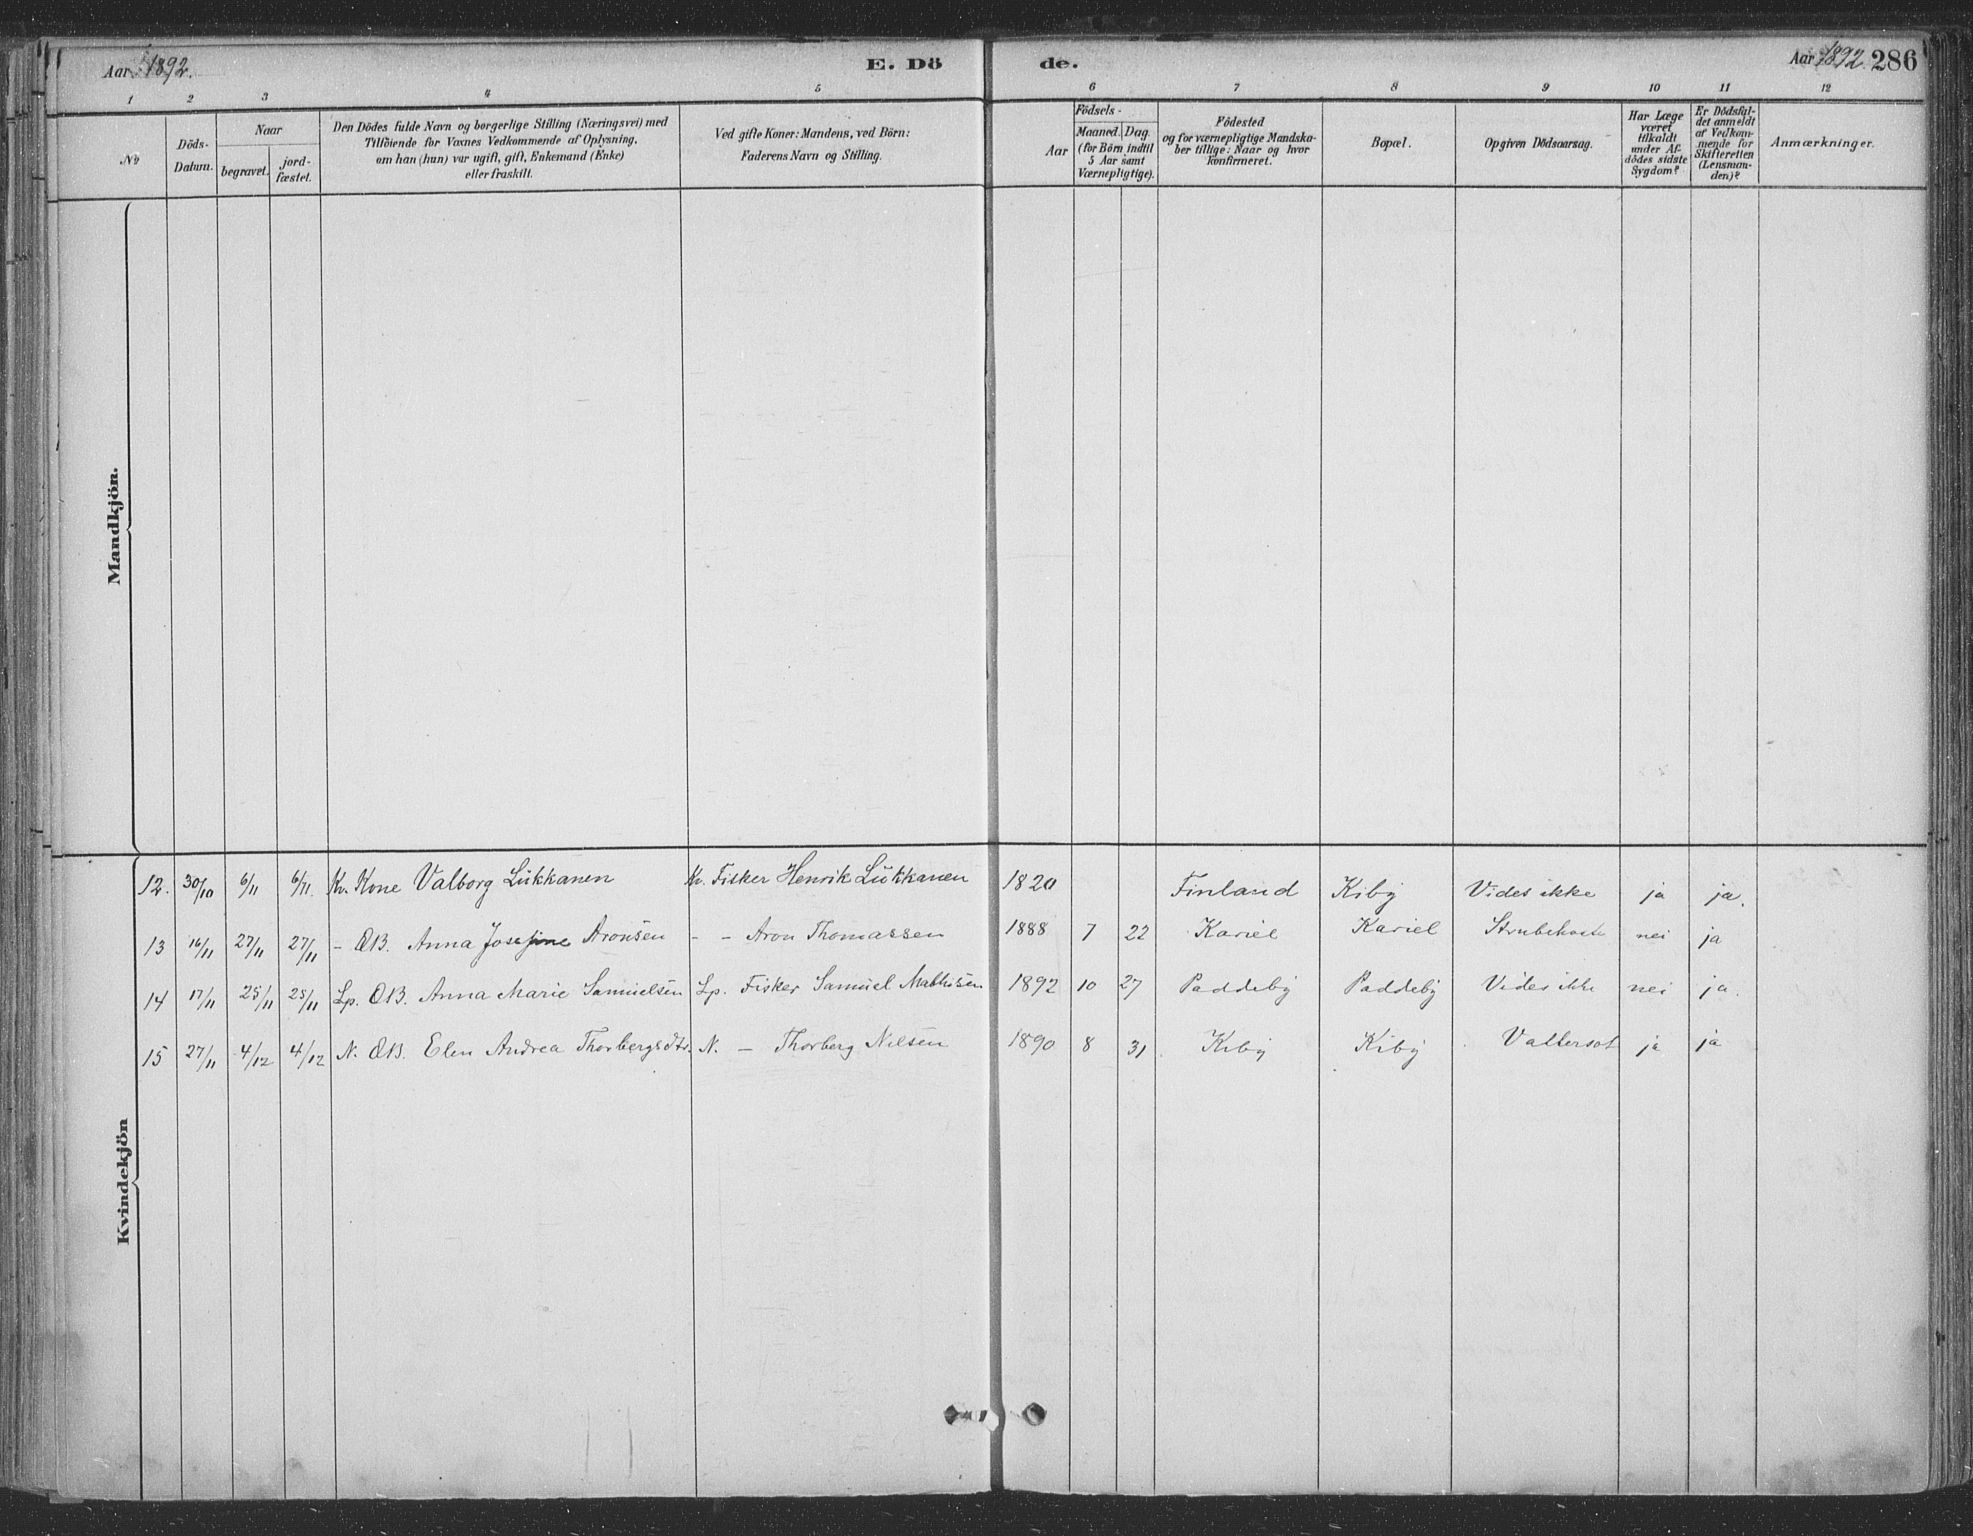 Aar 1892. E. Dö de. Aar 1892. 286
1 2 3 4 5 6 7 8 9 10 11 12
No
Döds-Datum.
Naar
begravet.
jord-fæstet.
Den Dödes fulde Navn og borgerlige Stilling (Næringsvei) med
Tilföiende for Voxnes Vedkommende af Oplysning,
om han (hun) var ugift, gift, Enkemand (Enke)
eller fraskilt.
Ved gifte Koner: Mandens, ved Börn:
Faderens Navn og Stilling.
Födsels-
Aar
Maaned. Dag.
(for Börn indtil
5 Aar samt
Værnepligtige).
Födested
og for værnepligtige Mandska-
ber tillige: Naar og hvor
konfirmeret.
Bopæl.
Opgiven Dödsaarsag.
Har Læge
været
tilkaldt
under Af-
dödes sidste
Sygdom?
Er Dödsfal-
det anmeldt
af Vedkom-
mende for
Skifteretten
(Lensman-
den)?
Anmærkninger.
Mandkjön.
Kvindekjön
12. 30/10 6/11 6/11. Kv. Kone Valborg Lukkanen Kv. Fisker Henrik Lukkanen 1820 Finland Kiby Vides ikke ja ja.
13 16/11 27/11 27/11 - ÆB. Anna Josefine Aronsen - - Aron Thomassen 1888 7 22 Kariel Kariel Strubehoste nei ja
14 17/11 25/11 25/11 Lp. ÆB. Anna Marie Samuelsen Lp. Fisker Samuel Mathisen 1892 10 27 Paddeby Paddeby Vides ikke nei ja.
15 27/11 4/12 4/12 N. ÆB. Elen Andrea Thorbergsdtr. N. - Thorberg Nilsen 1890 8 31 Kiby Kiby Vattersot ja ja